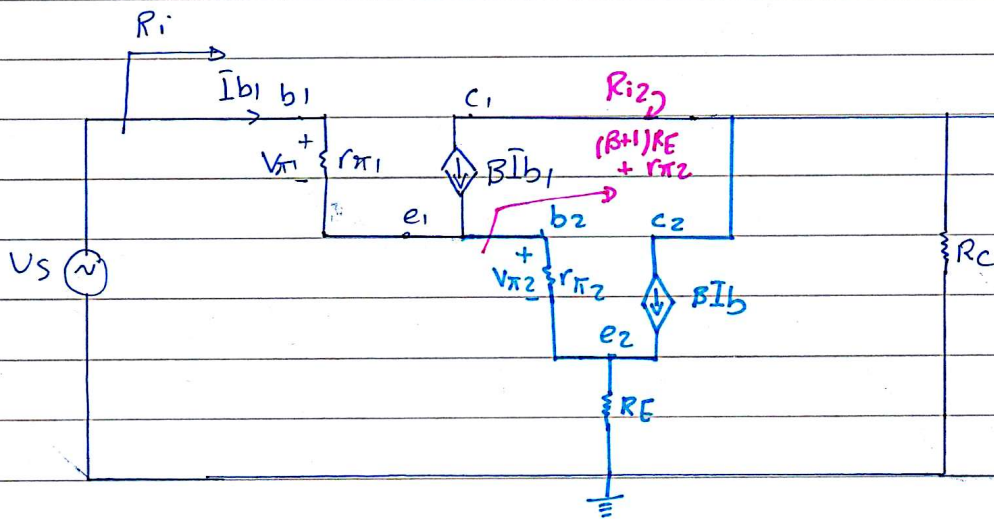 Ri
Ib1 b1
c1
Ri2
(B+1)RE
+ rπ2
+
Vπ1
-
rπ1
BIb1
e1
b2
c2
Vs
+
Vπ2
-
rπ2
BIb
Rc
e2
RE